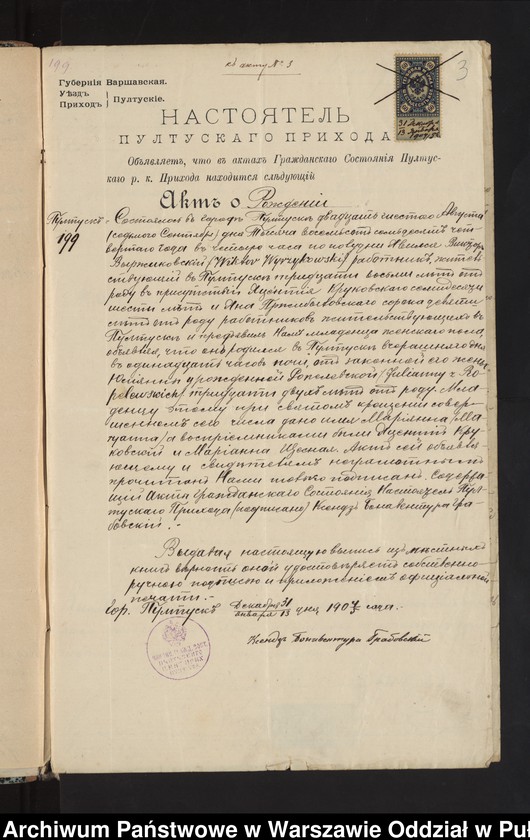 199
къ акту № 3
3
Губернія Варшавская.
Уѣздъ
Приходъ Пултускіе.
31 Декабря
13 Января
НАСТОЯТЕЛЬ
ПУЛТУСКАГО ПРИХОДА
Объявляетъ, что въ актахъ Гражданскаго Состоянія Пултус-
каго р. к. Прихода находится слѣдующій
Актъ о Рожденіи
Пултускъ
199
Состоялся въ городѣ Пултускѣ двадцать шестого Августа
(седьмого Сентября) дня тысяча восемьсотъ семьдесятъ чет-
вертаго года въ четыре часа по полудни. Явился Викторъ
Выржиковскій /Wiktor Wyrzykowski/ работникъ, житель-
ствующій въ Пултускѣ тридцати восьми лѣтъ отъ
роду въ присутствіи Яцентія Круковскаго семидесяти
шести лѣтъ и Яна сорока девяти
лѣтъ отъ роду работниковъ жительствующихъ въ
Пултускѣ и предъявилъ Намъ младенца женскаго пола,
объявляя, что онъ родился въ Пултускѣ вчерашняго дня
въ одинадцать часовъ ночи, отъ законной его жены
Юліанны урожденной /Julianny z
тридцати двухъ лѣтъ отъ роду. Мла-
денцу этому при святомъ крещеніи совер-
шенномъ сего числа дано имя Маріанна /Ma-
ryanna/ а воспріемниками были Яцентій Кру-
ковскій и Маріанна Актъ сей объявля-
ющему и свидѣтелямъ неграмотнымъ
прочитанъ Нами только подписанъ. Содержа-
щій Акты Гражданскаго Состоянія Настоятель Пул-
тускаго Прихода (подписано) Ксендзъ Бонавентура Гра-
бовскій. -
Выдавая настоящую выпись изъ мѣстныхъ
книгъ вѣрность оной удостовѣряетъ собственно-
ручною подписью и приложеніемъ оффиціальной
печати. -
Гор. Пултускъ Декабря 31
Января 13 дня 190 года. -
Ксендзъ Бонавентура Грабовскій
Archiwum Państwowe w Warszawie Oddział w Puł